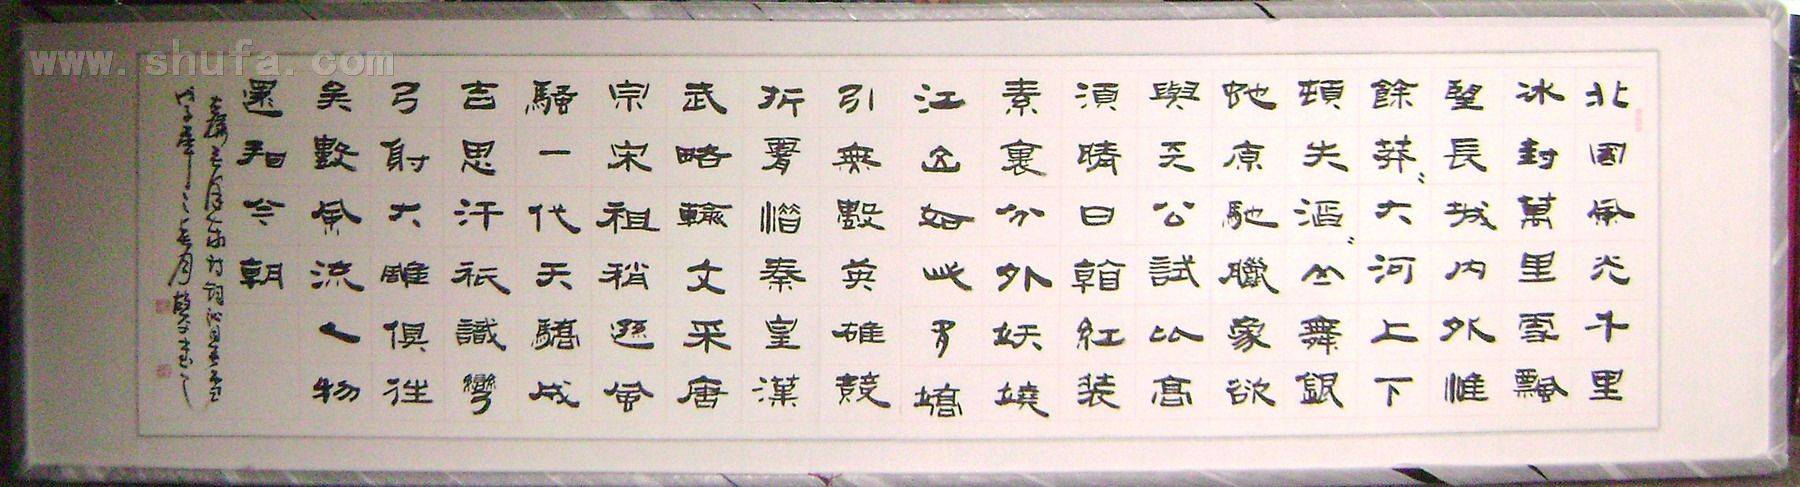 www.shufa.com
北國風光千里
冰封萬里雪飄
望長城內外惟
餘莽〻大河上下
頓失滔〻山舞銀
蛇原馳臘象欲
與天公試比高
須晴日看紅裝
素裹分外妖嬈
江山如此多嬌
引無數英雄競
折腰惜秦皇漢
武略輸文采唐
宗宋祖稍遜風
騷一代天驕成
吉思汗祇識彎
弓射大雕俱往
矣數風流人物
還看今朝
詞沁園春雪